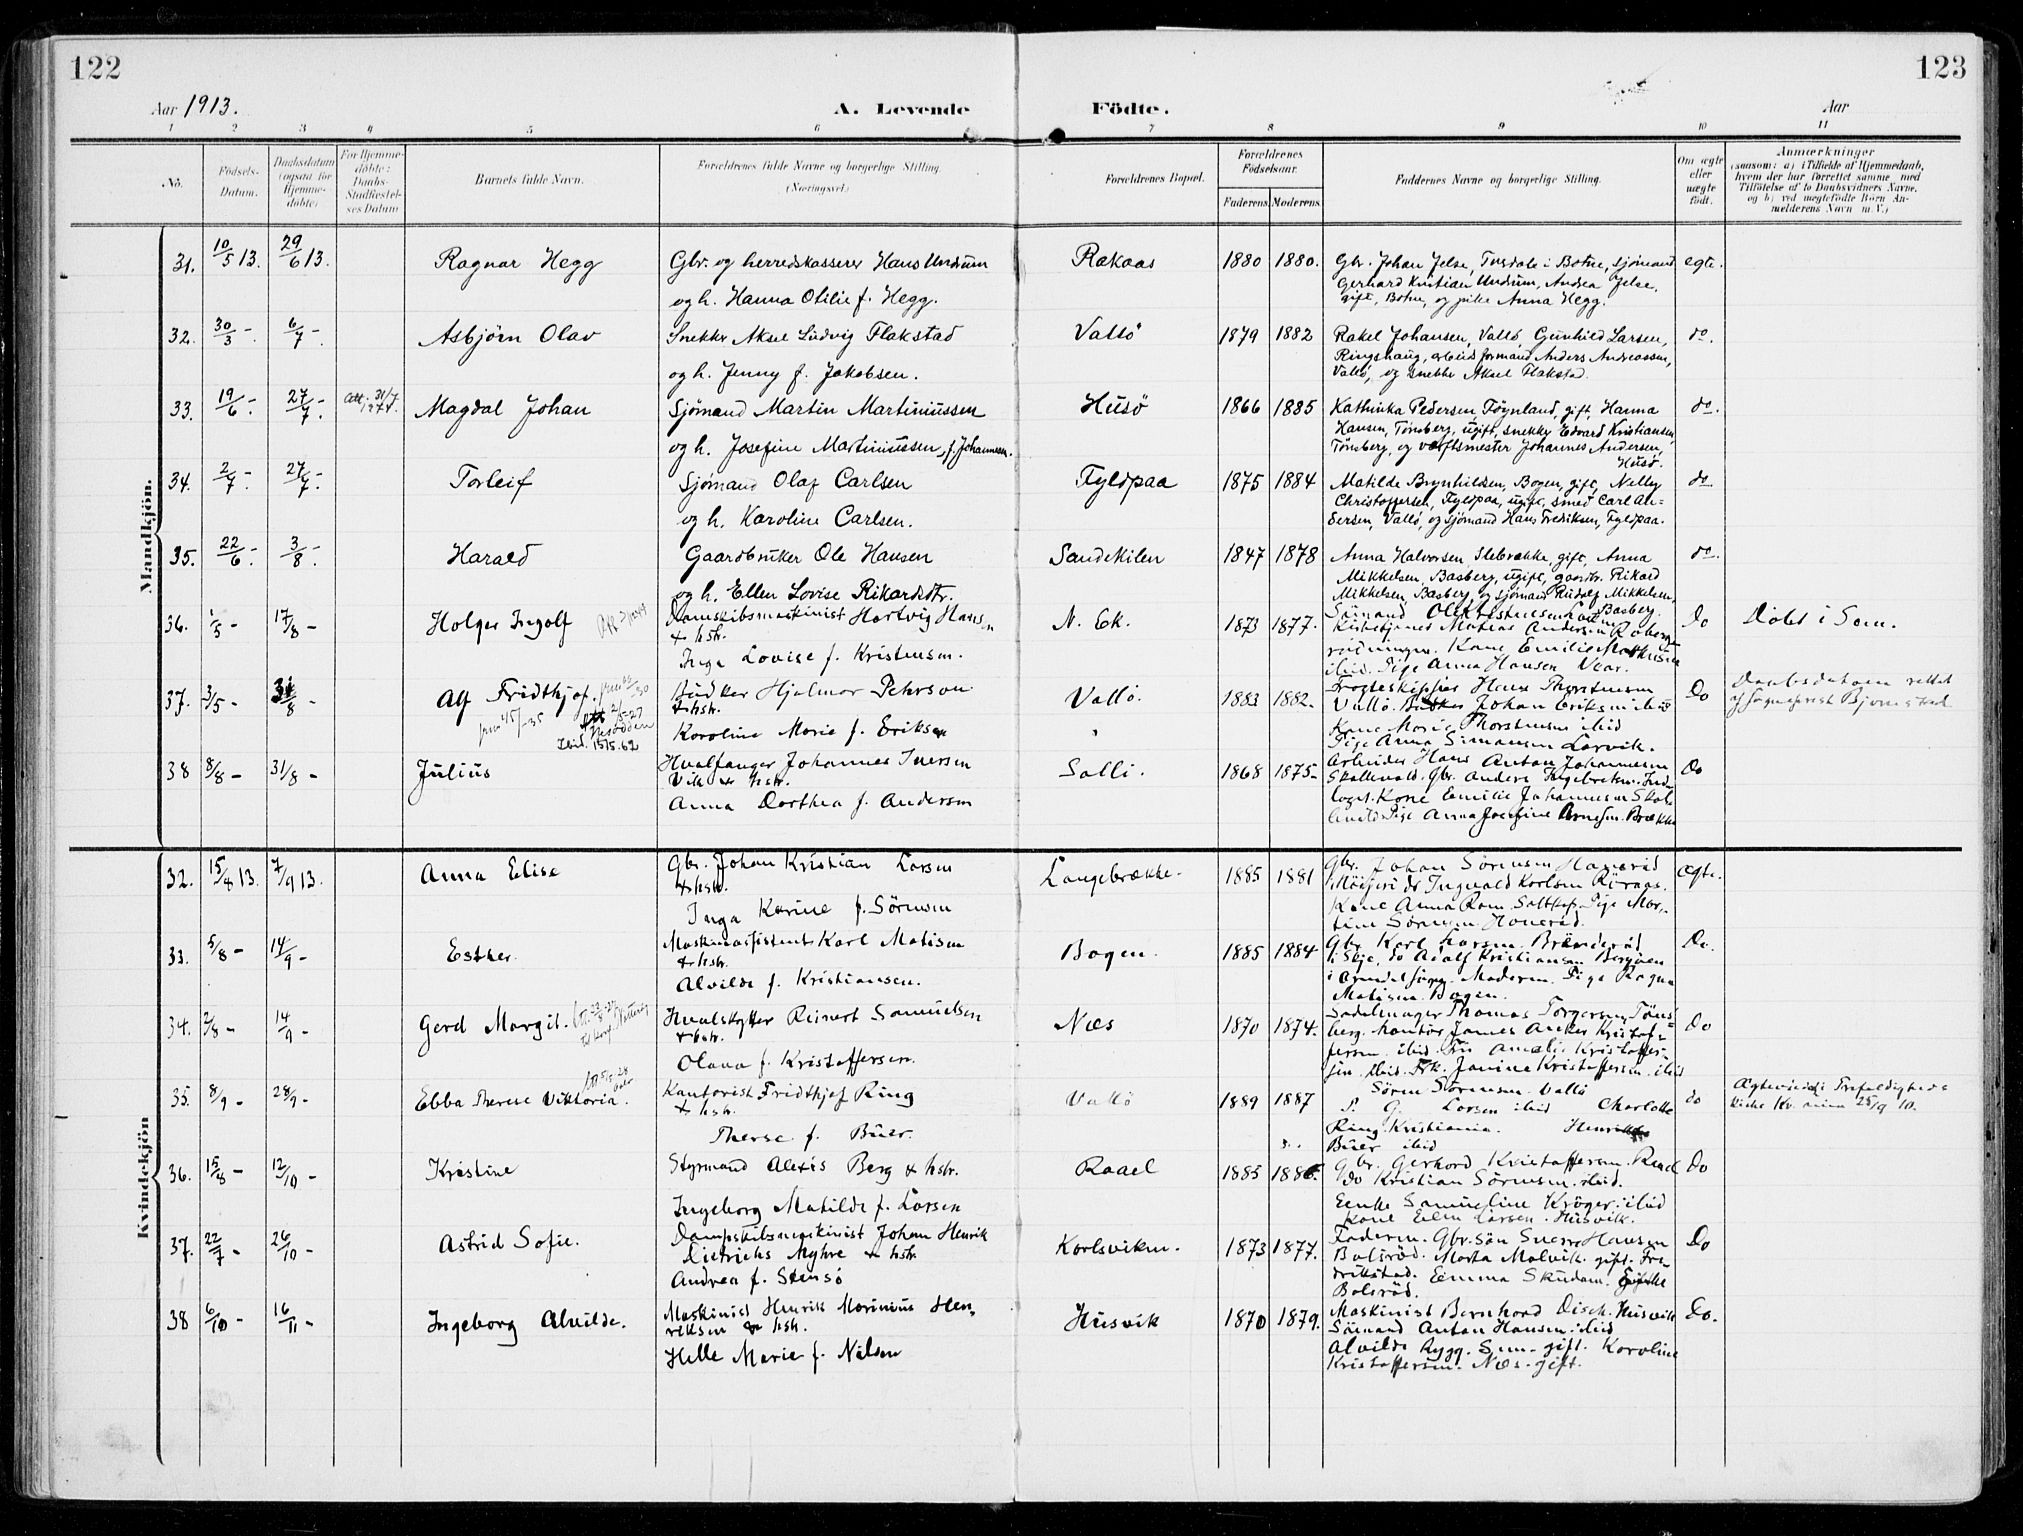 122
123
Aar 1913.
A. Levende
Födte.
Aar
1 2 3 4 5 6 7 8 9 10 11
No.
Födsels-Datum.
Daabsdatum (ogsaa for Hjemme-döbte)
For Hjemme-döbte: Daabs-Stadfæstelses Datum
Barnets fulde Navn.
Forældrenes fulde Navne og borgerlige Stilling. (Næringsvei.)
Forældrenes Bopæl.
Forældrenes Fødselsaar.
Faderens Moderens
Faddernes Navne og borgerlige Stilling.
Om ægte eller uægte født.
Anmærkninger
(saasom: a) i Tilfælde af Hjemmedaab, hvem der har forrettet samme med Tilføielse af to Daabsvidners Navne, og b) ved uægtefødte Børn Anmelderens Navn m. V.)
Mandkjön.
31. 10/5 13. 29/6 13. Ragnar Hegg
Gbr. og herredskasserer Hans Undrum
og h. Hanna Otilie f. Hegg.
Rakaas 1880 1880.
Gbr. Johan Jelse, i Botne, sjömand
Gerhard Kristian Undrum, Andrea Jelse,
gift, Botne, og pike Anna Hegg.
egte.
32. 30/3 - 6/7 - Asbjörn Olav
Snekker Aksel Ludvig Flakstad
og h. Jenny f. Jakobsen.
Vallö 1879 1882
Rakel Johansen, Vallö, Gunhild Larsen,
Ringshaug, arbeidsformand Anders Andreassen,
Vallö, og snekker Aksel Flakstad.
do.
33. 19/6 - 27/7 - Att. 31/7 1974. Magdal Johan
Sjömand Martin Martiniussen
og h. Josefine Martiniussen, f. Johannesen.
Husö 1866 1885
Kathinka Pedersen, Föynland, gift, Hanna
Hansen, Tönsberg, ugift, snekker Edvard Kristiansen,
Tönsberg, og værftsmester Johannes Andersen,
Husö.
do.
34. 2/7 - 27/7 - Torleif
Sjömand Olaf Carlsen
og h. Karoline Carlsen.
Fyldpaa 1875 1884
Matilde Brynhildsen, Bogen, gift, Nelly
Christoffersen, Fyldpaa, ugift, smed Carl An-
dersen, Vallö, og sjömand Hans Fredriksen, Fyldpaa.
do
35. 22/6 - 3/8 - Harald
Gaardbruker Ole Hansen
og h. Ellen Lovise Rikardsdtr.
Sandekilen 1847 1878
Anna Halvorsen, Slebrække, gift, Anna
Mikkelsen, Basberg, ugift, gaardbr. Rikard
Mikkelsen, Basberg, og sjömand Rudolf Mikkelsen,
Basberg.
do
36. 1/5 - 17/8 - Holger Ingolf
Dampskibsmaskinist Hartvig Hansen
& hstr.
Inga Lovise f. Kristensen.
N. Ek. 1873 1877.
Kone Emilie
ibid. Pige Anna Hansen
Do
Döbt i Sem.
37. 3/5 - 31/8 - Alf Fridthjof.
Ibid. 15/5.62
Bødker Hjalmar Pehrson
& hstr.
Karoline Marie f. Eriksen
Vallö. 1883 1882.
Fragteskipper Hans Thorstensen
Vallö. Bødker Johan Eriksen ibid
Kone Marie Thorstensen ibid
Pige Anna Simonsen Larvik.
Do
Daabsdatoen rettet
af Sogneprest Bjørnstad
38 8/8 - 31/8 - Julius
Hvalfanger Johannes Iversen
Vik & hstr.
Anna Dorthea f. Andersen
Solli. 1868 1875-
Arbeider Hans Anton Johannesen
Skallevold. Gbr. Anders Ingebretsen.
Kone Emilie Johannesen
Pige Anna Josefine Arnesen. Brække
Do
Kvindekjön
32. 15/8 13. 7/9 13. Anna Elise
Gbr. Johan Kristian Larsen
& hstr.
Inga Karine f. Sörensen
Langebrække. 1885 1881
Gbr. Johan Sörensen Haneröd
Ingvald Karlsen Röraas.
Kone Anna Pige Mar-
tine Sörensen. Haneröd.
Ægte.
33. 5/8 - 14/9 - Esther.
Maskinassistent Karl Matisen
& hstr.
Alvilde f. Kristiansen.
Bogen. 1885 1884
Gbr. Karl Larsen.
do Adolf Kristiansen Bergsven
Moderen. Pige Ragna
Matisen. Bogen.
Do.
34. 2/8 - 14/9 - Gerd Margit.
Hvalskytter Reinert Samuelsen
& hstr.
Olava f. Kristoffersen.
Næs 1870 1874.
Sadelmager Thomas Torgersen, Töns-
berg. Kontor. James Anker Kristof-
fersen. ibid. Fru Amalie Kristoffer-
sen. ibid. Frk. Janine Kristoffersen. ibid
Do
35. 8/9 - 28/9 - Ebba Therese Viktoria.
Kontorist Fridthjof Ring
& hstr.
Therese f. Buer.
Vallö 1889 1887
Sören Sörensen. Vallö
P. G. Larsen ibid Charlotte
Ring. Kristiania. Henrikke
Buer ibid
do
Ægteviede i Trefoldigheds
kirke Kr.ania 25/9 10.
36. 15/8 - 12/10 - Kristine
Styrmand Alexis Berg & hstr.
Ingeborg Matilde f. Larsen
Raael 1885 1886.
Gbr. Gerhard Kristoffersen. Raael
do Kristian Sörensen. ibid.
Enke Samueline Kröger. ibid
Kone Elen Larsen. Husvik.
Do
37. 22/7 - 26/10 - Astrid Sofie.
Dampskibsmaskinist Johan Henrik
Dietrichs Myhre & hstr.
Andrea f. Stensö
Karlsviken. 1873 1877.
Faderen. Gbr.sön Sverre Hansen
Bolsröd. Marta Malvik. gift. Fre-
drikstad. Emma Skudam. Gift
Bolsröd.
Do
38 6/10 - 16/11 - Ingeborg Alvilde.
Maskinist Henrik Marinius Hen-
riksen & hstr.
Helle Marie f. Nilsen
Husvik 1870 1879.
Maskinist Bernhard Disch. Husvik
Sömand Anton Hansen. ibid
Alvilde Rygg. Sem. gift. Karoline
Kristoffersen. Næs. gift.
Do.